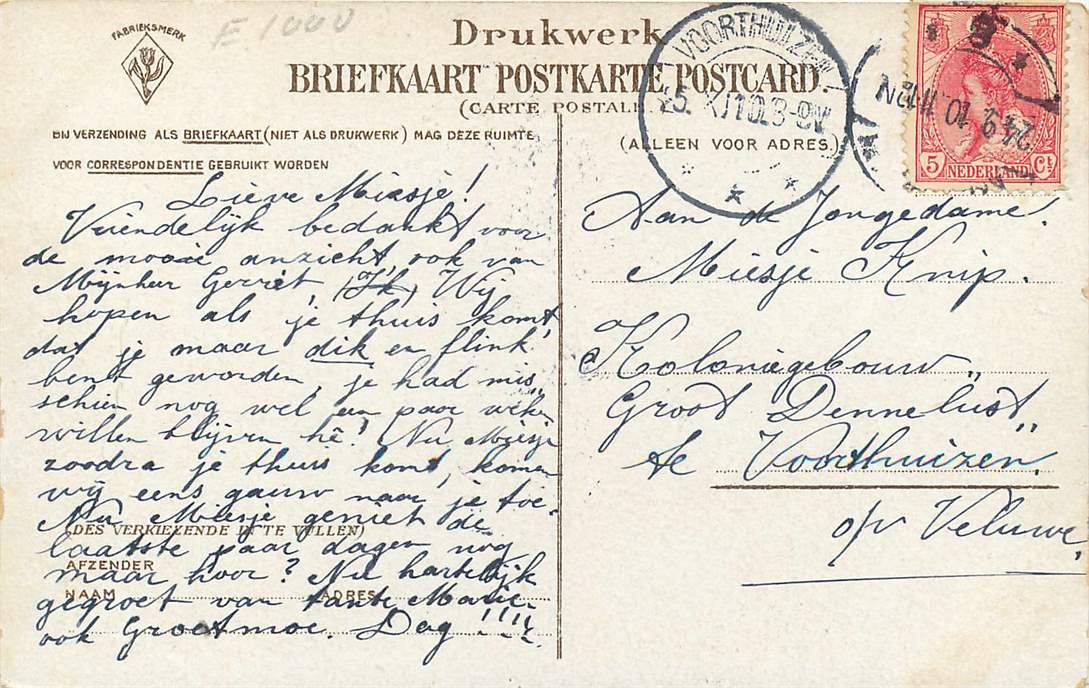 FABRIEKSMERK
E 1000
Drukwerk
BRIEFKAART POSTKARTE POSTCARD.
(CARTE POSTALE
BIJ VERZENDING ALS BRIEFKAART (NIET ALS DRUKWERK) MAG DEZE RUIMTE
VOOR CORRESPONDENTIE GEBRUIKT WORDEN
(ALLEEN VOOR ADRES.)
VOORTHUIZEN
10.8-9V
10 11-12N
5 NEDERLAND Ct
Lieve Miesje!
Vriendelijk bedankt voor
de mooie anzicht, ook van
Mijnheer Gerrit, Wij
hopen als je thuis komt
dat je maar dik en flink
bent geworden, je had mis„
schien nog wel een paar weken
willen blijven hê! Nu Miesje
zoodra je thuis komt, komen
wij eens gauw naar je toe.
Nu Miesje geniet de
(DES VERKIEZENDE IN TE VULLEN)
laatste paar dagen nog
AFZENDER
maar hoor? Nu hartelijk
NAAM ADRES
gegroet van tante Marie
ook Grootmoe. Dag !!!!
Aan de Jongedame.
Miesje Knip.
Koloniegebouw
„Groot Dennelust„
te Voorthuizen.
op Veluwe.